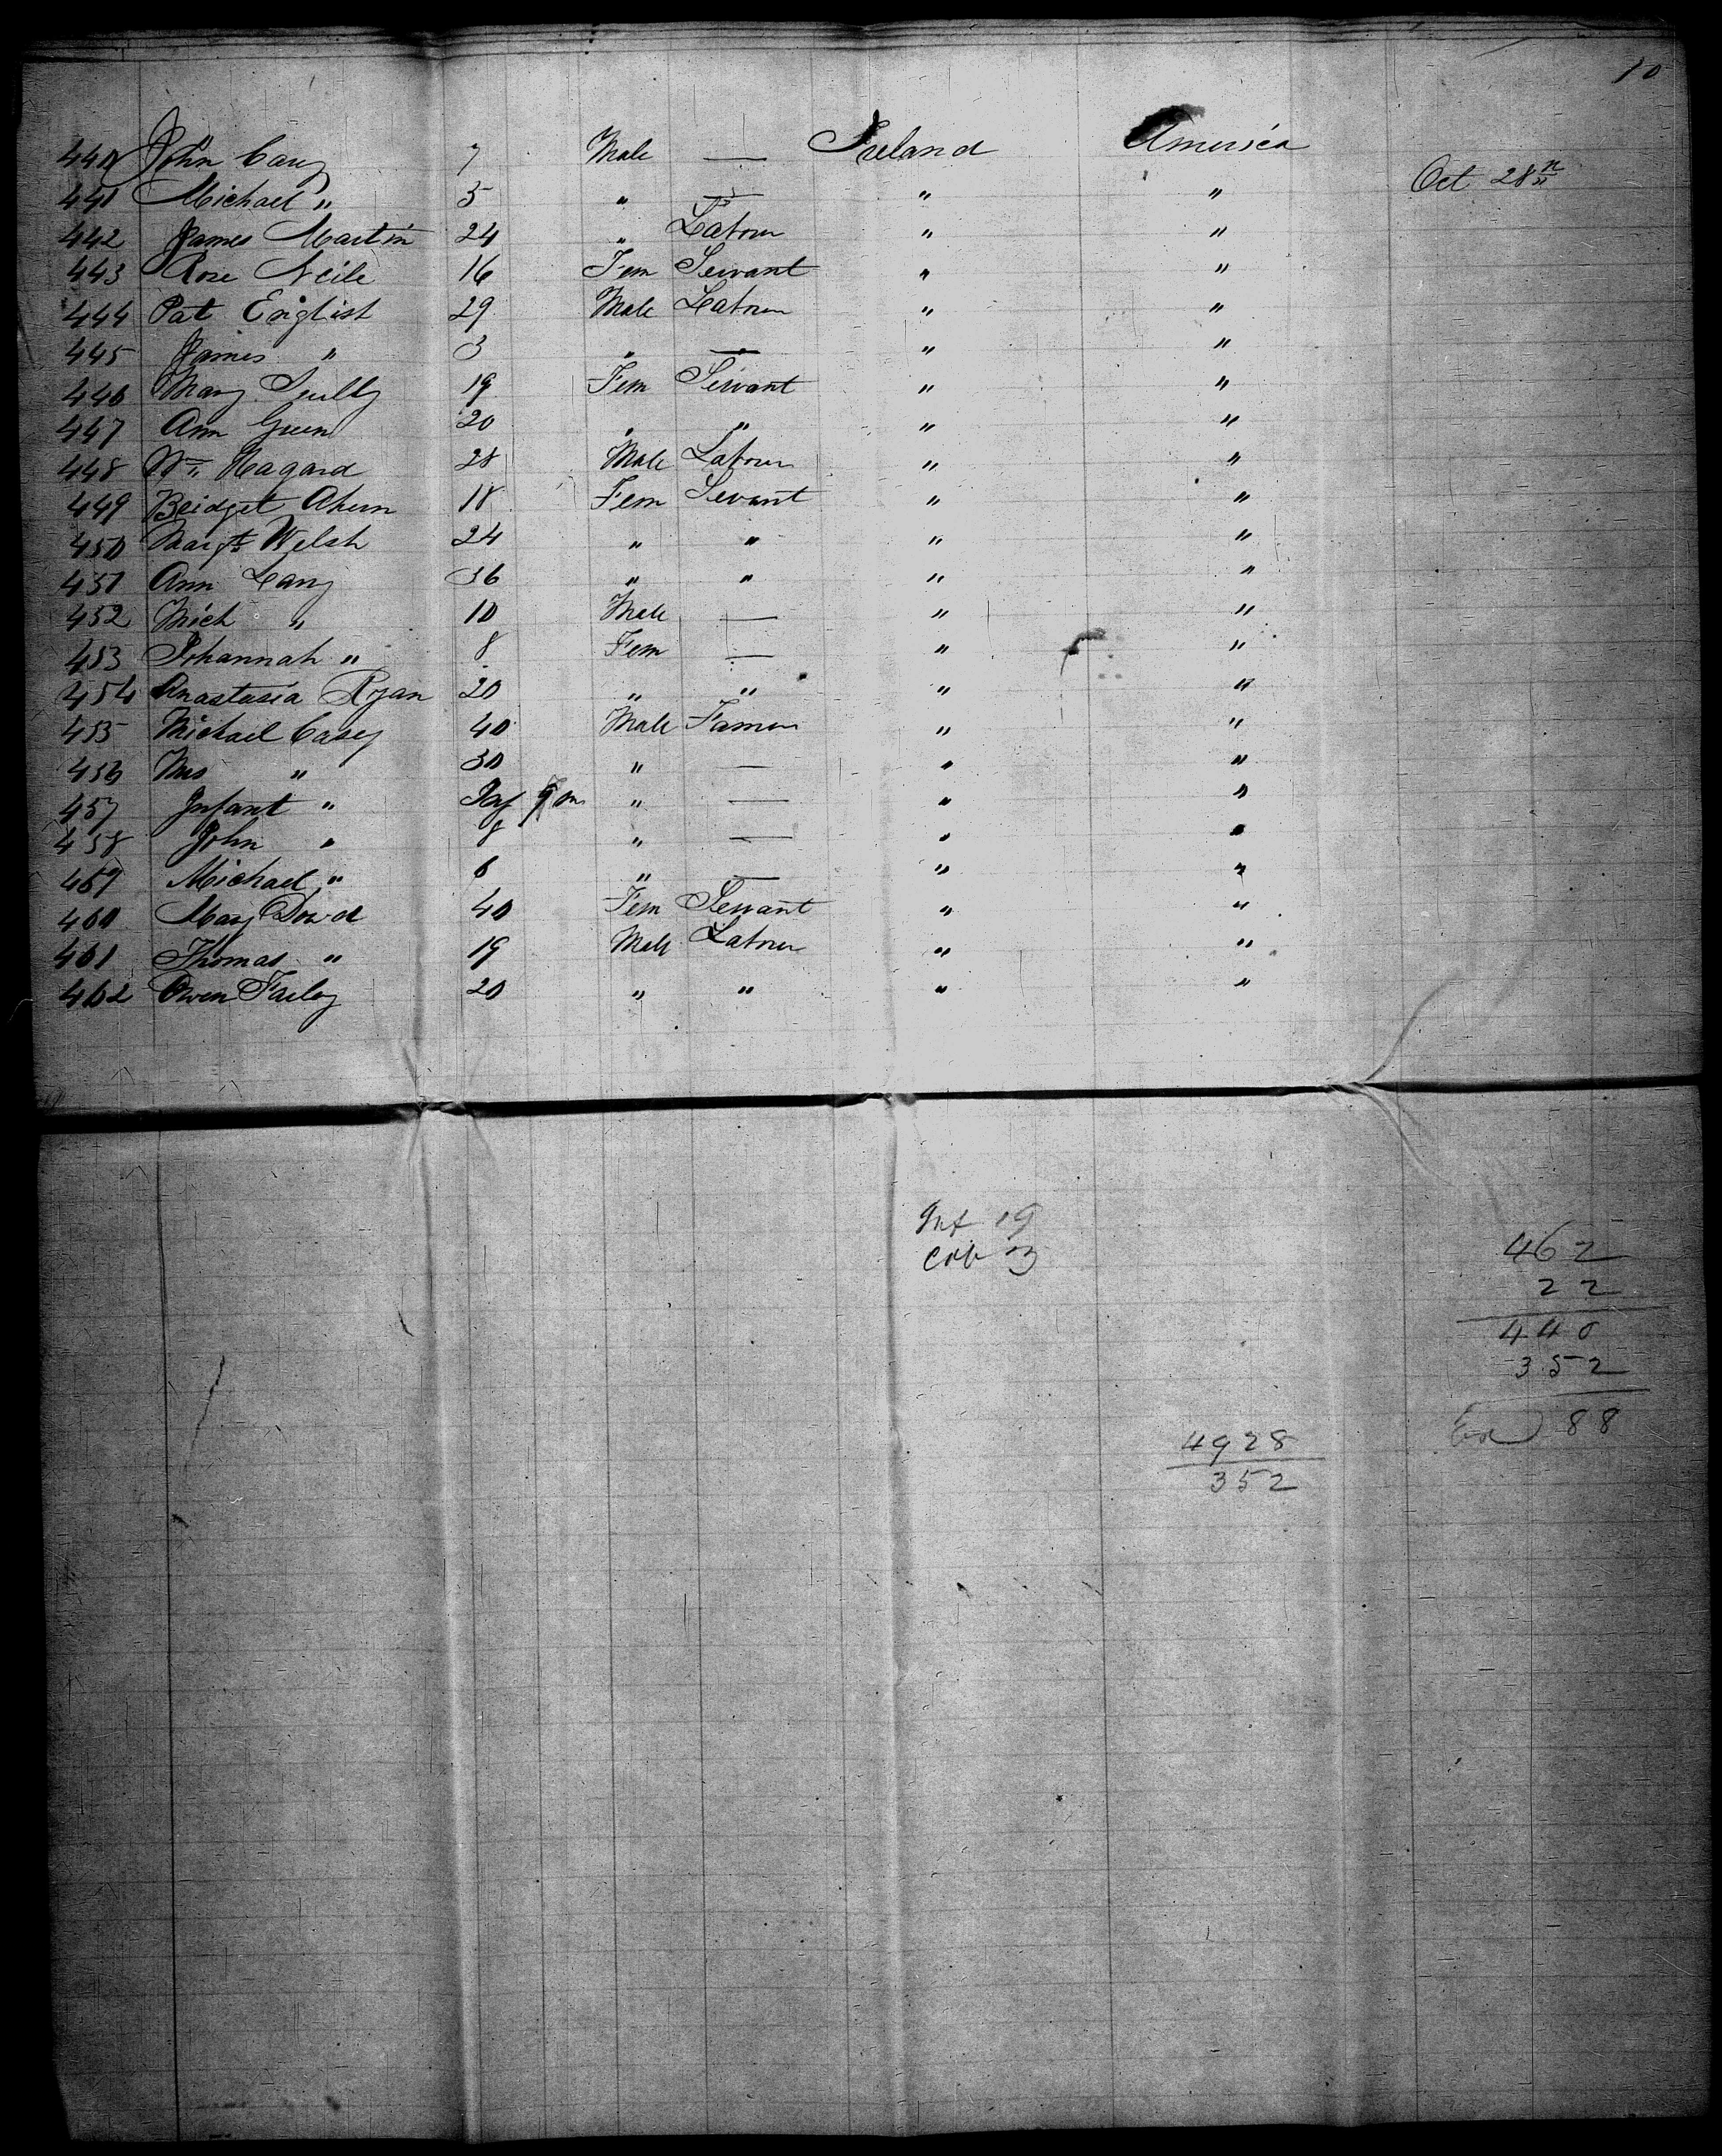 10
440 John Carey 7 Male — Ireland America
Oct 28th
441 Michael " 5 " — " "
442 James Martin 24 " Laborer " "
443 Rose Neile 16 Fem Servant " "
444 Pat English 29 Male Laborer " "
445 James " 3 " — " "
446 Mary Scully 19 Fem Servant " "
447 Ann Green 20 " " " "
448 Wm Hagard 28 Male Laborer " "
449 Bridget Ahern 18 Fem Servant " "
450 Margt Welsh 24 " " " "
451 Ann Carey 36 " " " "
452 Mich " 10 Male — " "
453 Johannah " 8 Fem — " "
454 Anastasia Ryan 20 " " " "
455 Michael Casey 40 Male Farmer " "
456 Mrs " 30 " — " "
457 Infant " Inf 9 m " — " "
458 John " 8 " — " "
459 Michael " 6 " — " "
460 Mary Dowd 40 Fem Servant " "
461 Thomas " 19 Male Laborer " "
462 Owen Farley 20 " " " "
Inf 19
3
462
22
440
352
88
4928
352